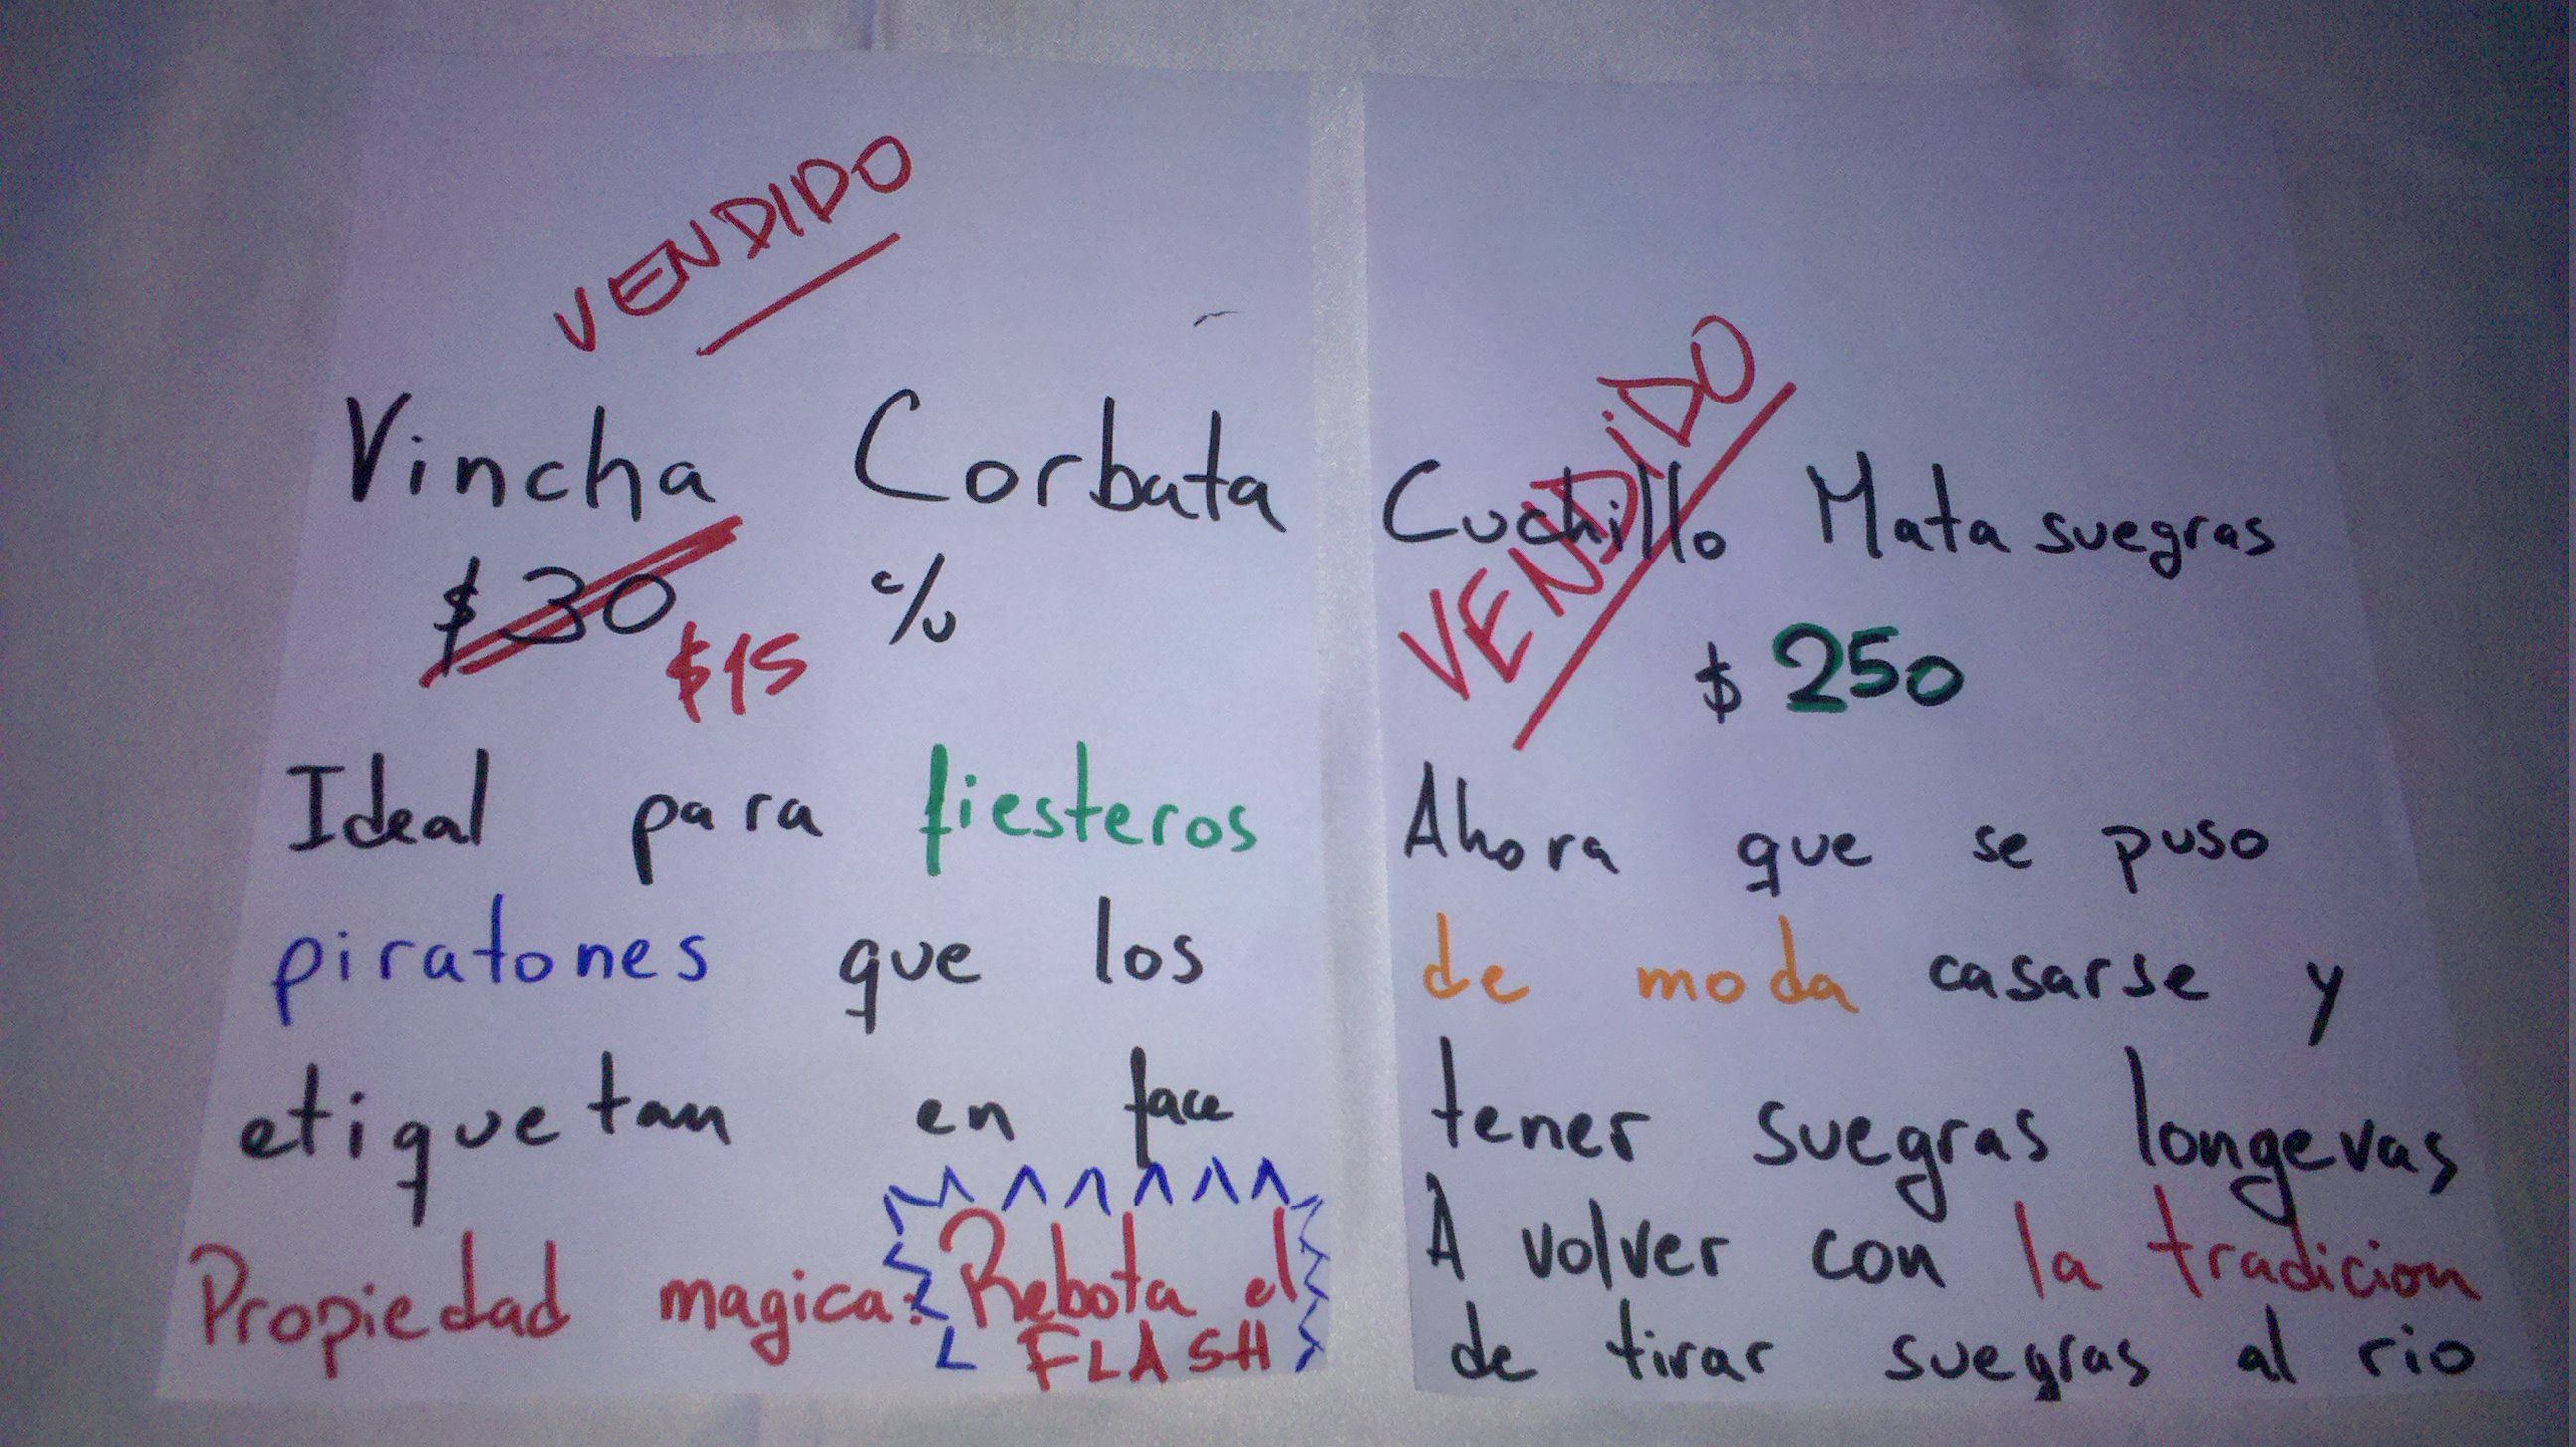 VENDIDO
Vincha Corbata
$30 $15 c/u
Ideal para fiesteros
piratones que los
etiquetan en face
Propiedad magica: Rebota el
FLASH
Cuchillo Mata suegras
VENDIDO
$250
Ahora que se puso
de moda casarse y
tener suegras longevas
A volver con la tradicion
de tirar suegras al rio